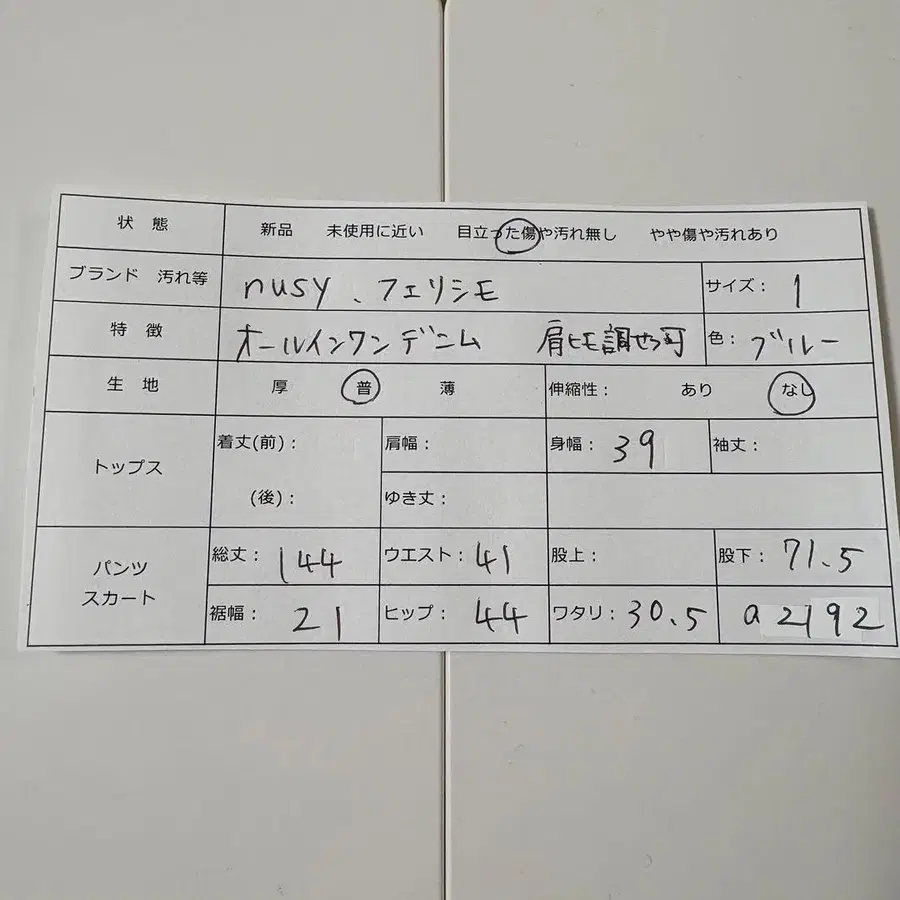 状 態 新品 未使用に近い 目立った傷や汚れ無し やや傷や汚れあり
ブランド 汚れ等 nusy、フェリシモ サイズ: 1
特 徴 オールインワンデニム 肩ヒモ調せつ可 色: ブルー
生 地 厚 普 薄 伸縮性: あり なし
トップス 着丈(前): 肩幅: 身幅: 39 袖丈:
(後): ゆき丈:
パンツ スカート 総丈: 144 ウエスト: 41 股上: 股下: 71.5
裾幅: 21 ヒップ: 44 ワタリ: 30.5 a2192